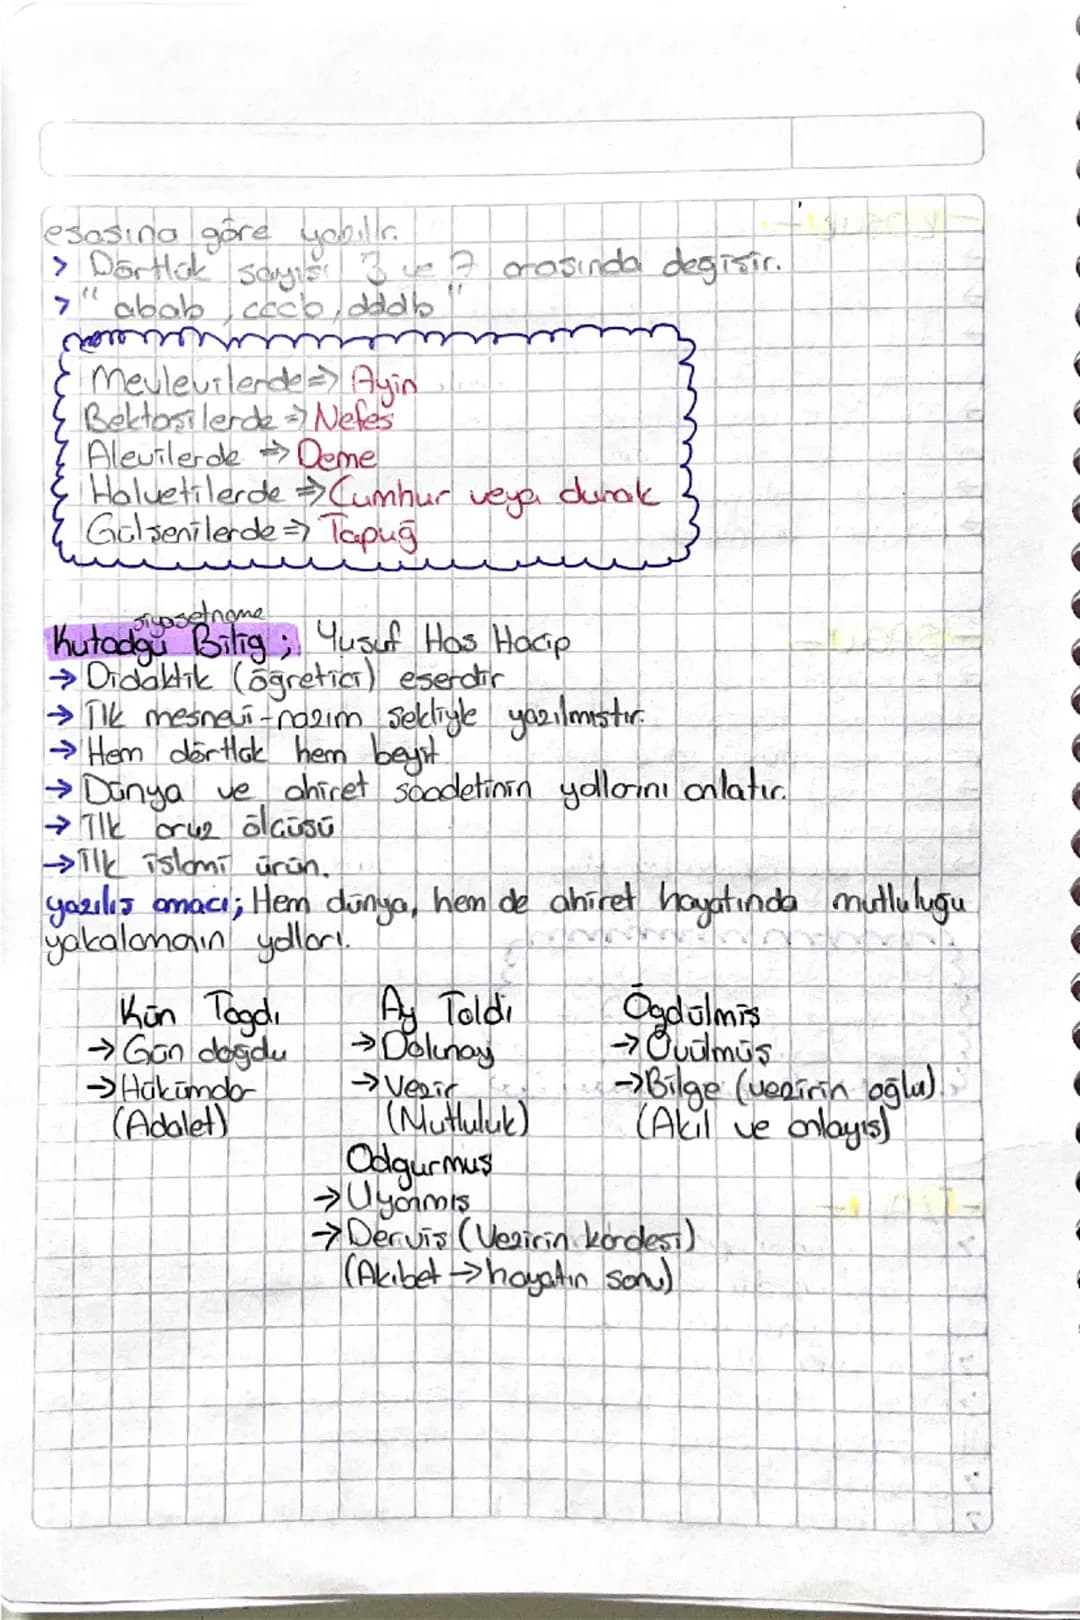 esasına göre yazılır.
> Dörtlük sayısı 3 ve 7 arasında değişir.
> "abab, cccb, dddb"
Mevlevilerde => Ayin
Bektaşilerde => Nefes
Alevilerde => Deme
Halvetilerde => Cumhur veya durak
Gülşenilerde => Tapuğ
siyasetname
Kutadgu Bilig ; Yusuf Has Hacip
→ Didaktik (öğretici) eserdir
→ İlk mesnevi-nazım şekliyle yazılmıştır.
→ Hem dörtlük hem beyit
→ Dünya ve ahiret saadetinin yollarını anlatır.
→ İlk aruz ölçüsü
→ İlk islami ürün.
yazılış amacı; Hem dünya, hem de ahiret hayatında mutluluğu
yakalamanın yolları.
Kün Togdı Ay Toldı Ögdülmiş
→ Gün doğdu → Dolunay → Övülmüş
→ Hükümdar → Vezir → Bilge (vezirin oğlu).
(Adalet) (Mutluluk) (Akıl ve anlayış)
Odgurmuş
→ Uyanmış
→ Derviş (Vezirin kardeşi)
(Akıbet → hayatın sonu)